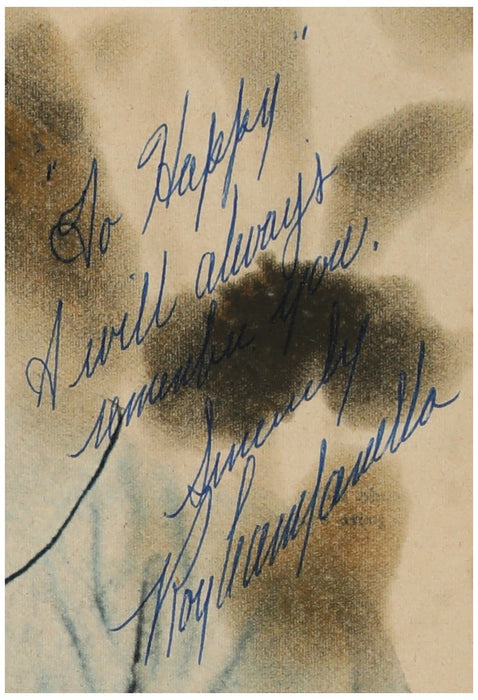 "To Happy"
I will always
remember you.
Sincerely
Roy Campanella